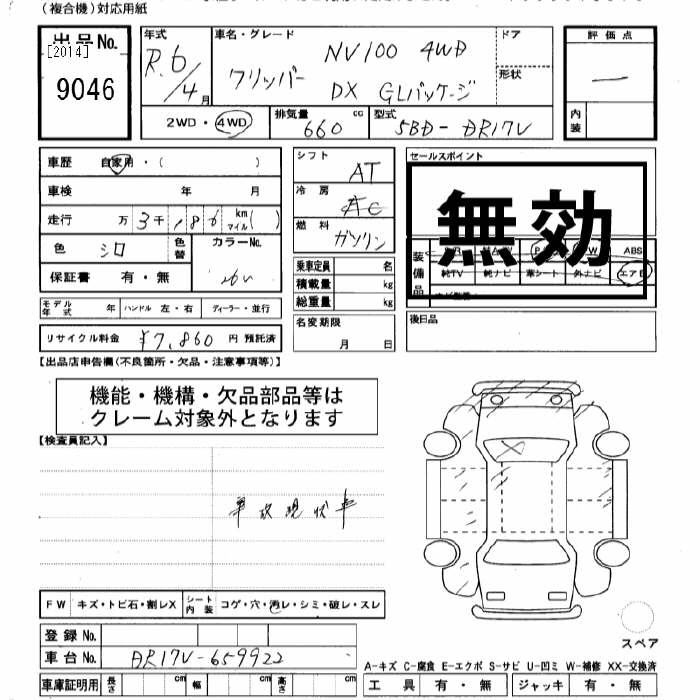 (複合機)対応用紙
出品No.
[2014]
9046
年式
R.6/4月
車名・グレード
NV100 4WD
クリッパー DX GLパッケージ
ドア
形状
評価点
内装
2WD・4WD
排気量 660 cc
型式 5BD-DR17V
車歴 自家用・( )
車検 年 月
走行 万 3千,186 km マイル( )
色 シロ
色替
カラーNo. 26U
保証書 有・無
モデル年式 年 ハンドル 左・右 ディーラー・並行
リサイクル料金 ¥7,860 円 預託済
シフト AT
冷房 AC
燃料 ガソリン
乗車定員 名
積載量 kg
総重量 kg
名変期限
月 日
セールスポイント
無効
装備品
ABS
純TV 純ナビ 革シート 外ナビ エアB
後日品
【出品店申告欄(不良箇所・欠品・注意事項等)】
機能・機構・欠品部品等は
クレーム対象外となります
【検査員記入】
事故現状車
FW キズ・トビ石・割レX シート内装 コゲ・穴・汚レ・シミ・破レ・スレ
登録No.
車台No. DR17V-659922
車庫証明用 長さ cm 幅 cm 高さ cm
スペア
A-キズ C-腐食 E-エクボ S-サビ U-凹ミ W-補修 XX-交換済
工具 有・無 ジャッキ 有・無